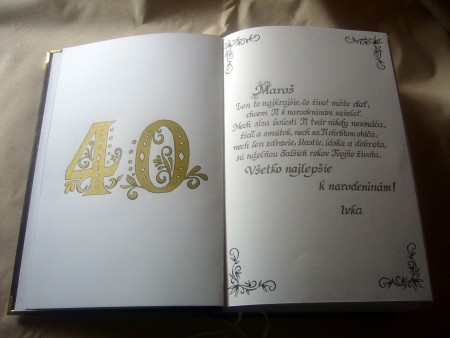 40
Maroš
Len to najkrajšie, čo život môže dať,
chcem Ti k narodeninám zaželať.
Nech slza bolesti Ti tvár nikdy nezmáča,
žiaľ a smútok, nech sa Ti chrbtom obháča,
nech len zdravie, šťastie, láska a dobrota,
sú náplňou ďalších rokov Tvojho života.
Všetko najlepšie
k narodeninám!
Ivka